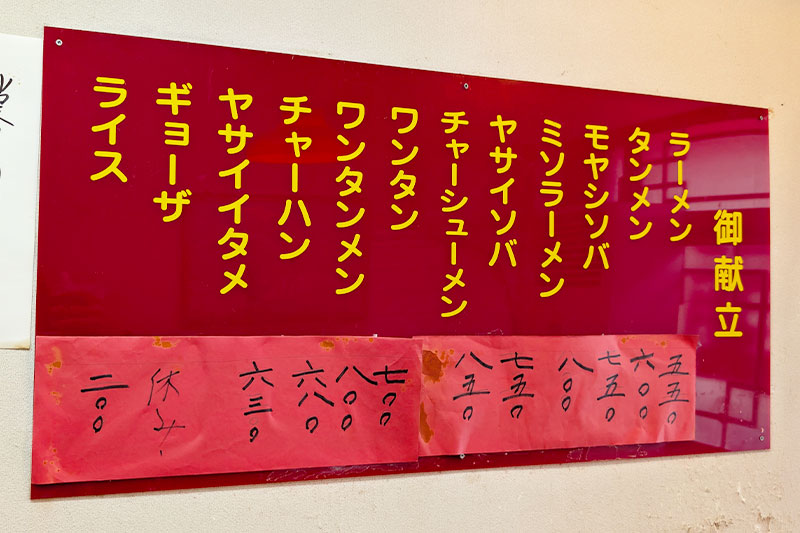 御献立
ラーメン
タンメン
モヤシソバ
ミソラーメン
ヤサイソバ
チャーシューメン
ワンタン
ワンタンメン
チャーハン
ヤサイイタメ
ギョーザ
ライス
五五〇
六〇〇
七五〇
八〇〇
七五〇
八五〇
七〇〇
八〇〇
六八〇
六三〇
休み
二〇〇